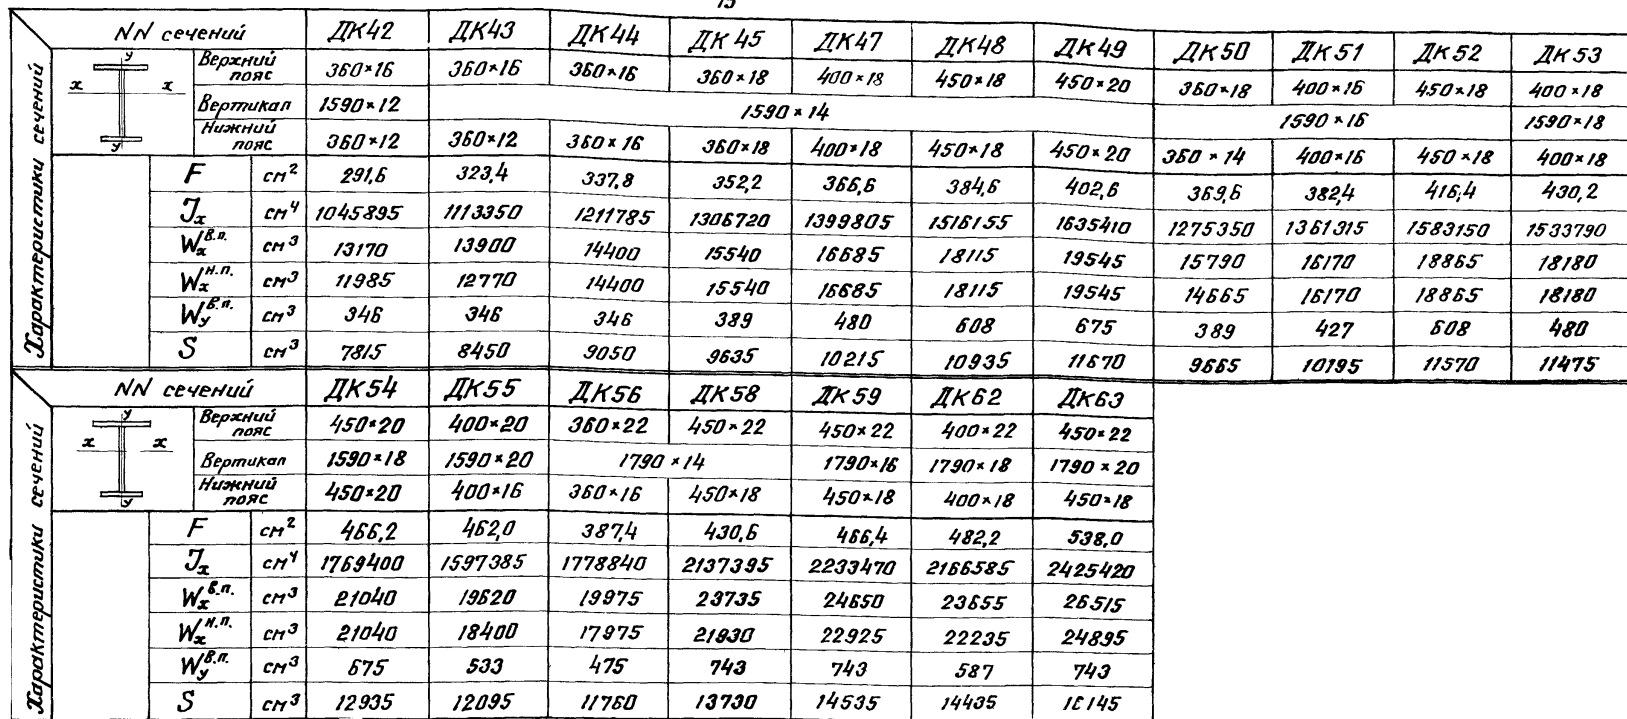 15
NN сечений ДК42 ДК43 ДК44 ДК45 ДК47 ДК48 ДК49 ДК50 ДК51 ДК52 ДК53
Характеристики сечений
y x x y
Верхний пояс 360×16 360×16 360×16 360×18 400×18 450×18 450×20 360×18 400×16 450×18 400×18
Вертикал 1590×12 1590×14 1590×16 1590×18
Нижний пояс 360×12 360×12 360×16 360×18 400×18 450×18 450×20 360×14 400×16 450×18 400×18
F см² 291,6 323,4 337,8 352,2 366,6 384,6 402,6 369,6 382,4 416,4 430,2
Jx см⁴ 1045895 1113350 1211785 1306720 1399805 1516155 1635410 1275350 1361315 1583150 1533790
Wx в.п. см³ 13170 13900 14400 15540 16685 18115 19545 15790 16170 18865 18180
Wx н.п. см³ 11985 12770 14400 15540 16685 18115 19545 14665 16170 18865 18180
Wy в.п. см³ 346 346 346 389 480 608 675 389 427 608 480
S см³ 7815 8450 9050 9635 10215 10935 11670 9665 10195 11570 11475
NN сечений ДК54 ДК55 ДК56 ДК58 ДК59 ДК62 ДК63
Характеристики сечений
y x x y
Верхний пояс 450×20 400×20 360×22 450×22 450×22 400×22 450×22
Вертикал 1590×18 1590×20 1790×14 1790×16 1790×18 1790×20
Нижний пояс 450×20 400×16 360×16 450×18 450×18 400×18 450×18
F см² 466,2 462,0 387,4 430,6 466,4 482,2 538,0
Jx см⁴ 1769400 1597385 1778840 2137395 2233470 2166585 2425420
Wx в.п. см³ 21040 19620 19975 23735 24650 23655 26515
Wx н.п. см³ 21040 18400 17975 21930 22925 22235 24895
Wy в.п. см³ 675 533 475 743 743 587 743
S см³ 12935 12095 11760 13730 14535 14435 16145